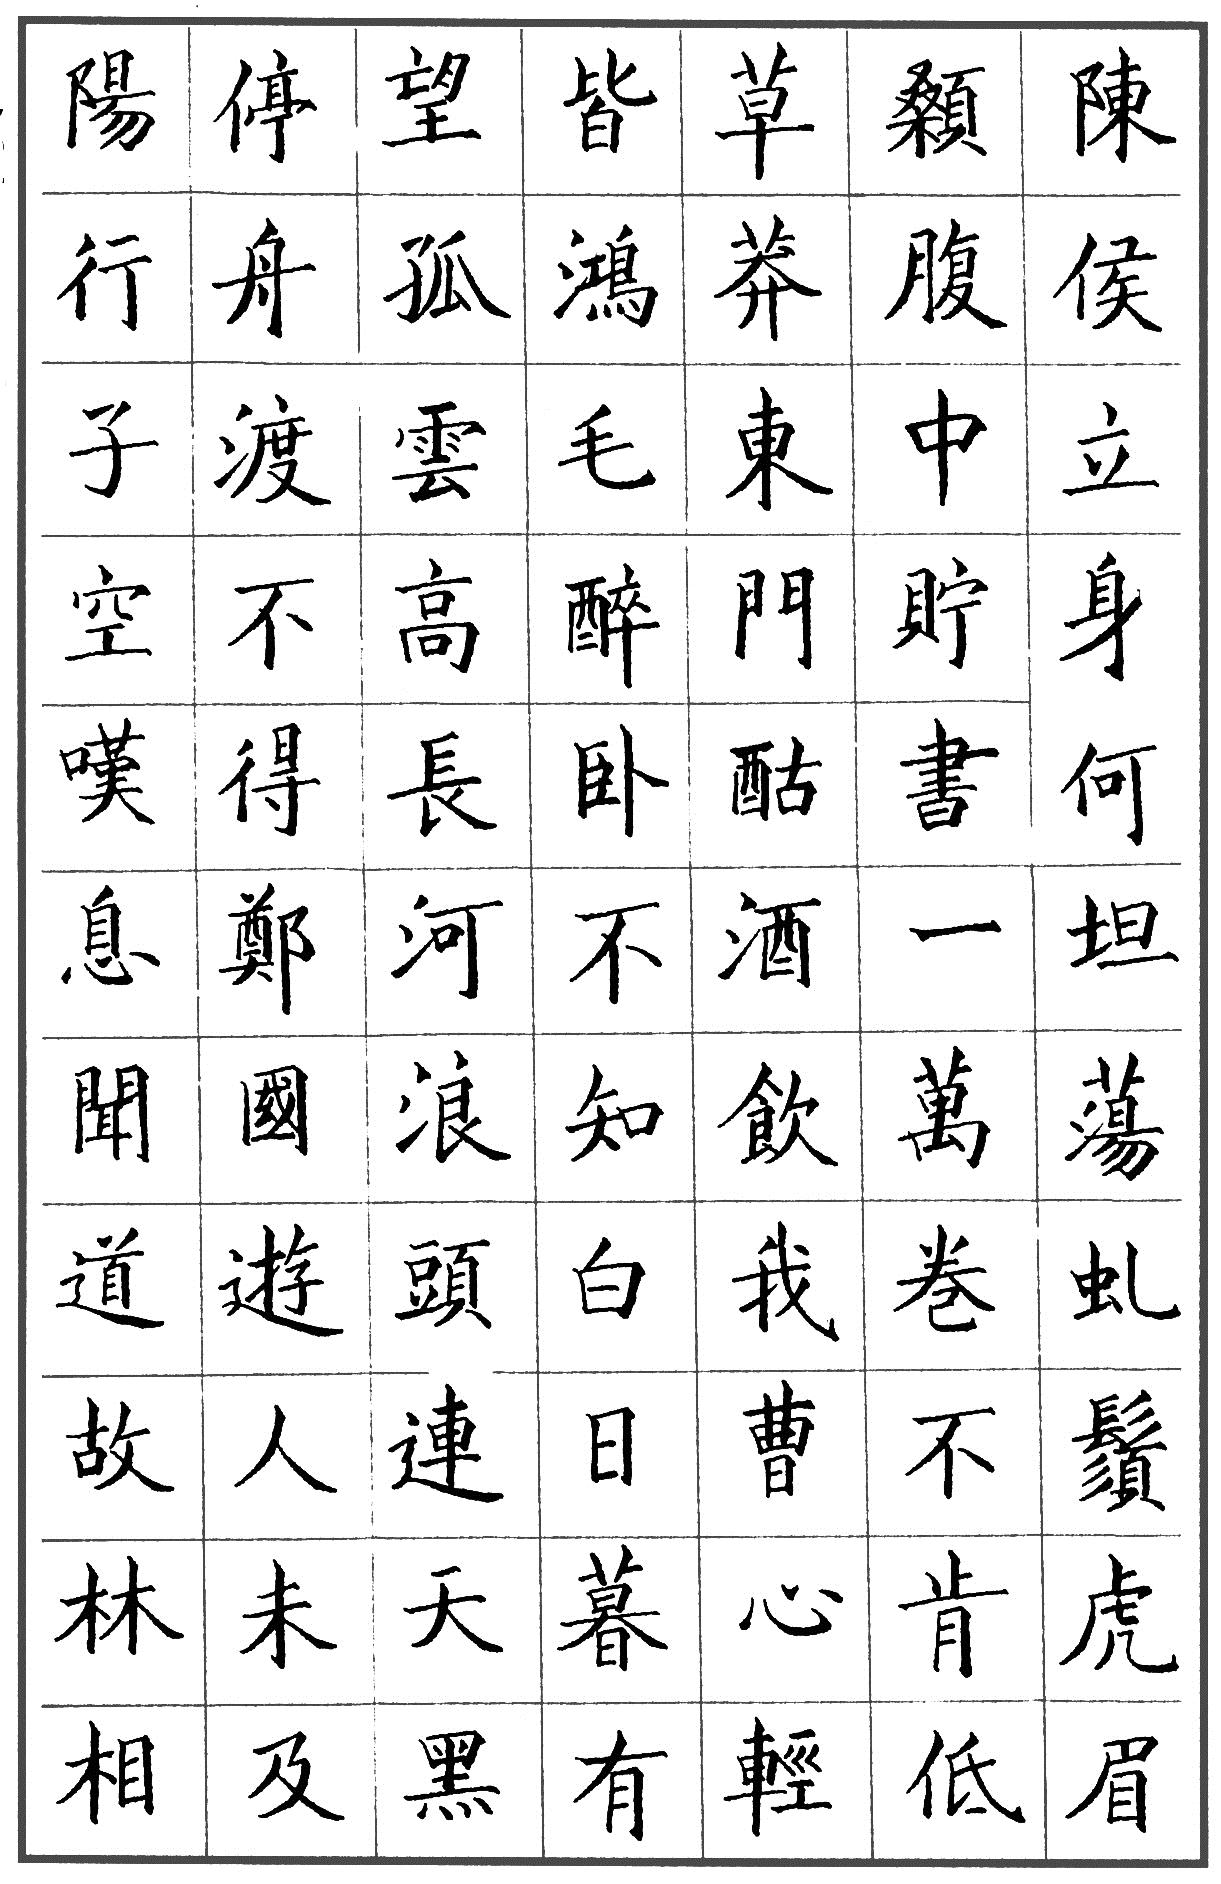 陳侯立身何坦蕩虬鬚虎眉
顙腹中貯書一萬卷不肯低
草莽東門酤酒飲我曹心輕
皆鴻毛醉卧不知白日暮有
望孤雲高長河浪頭連天黑
停舟渡不得鄭國遊人未及
陽行子空嘆息聞道故林相